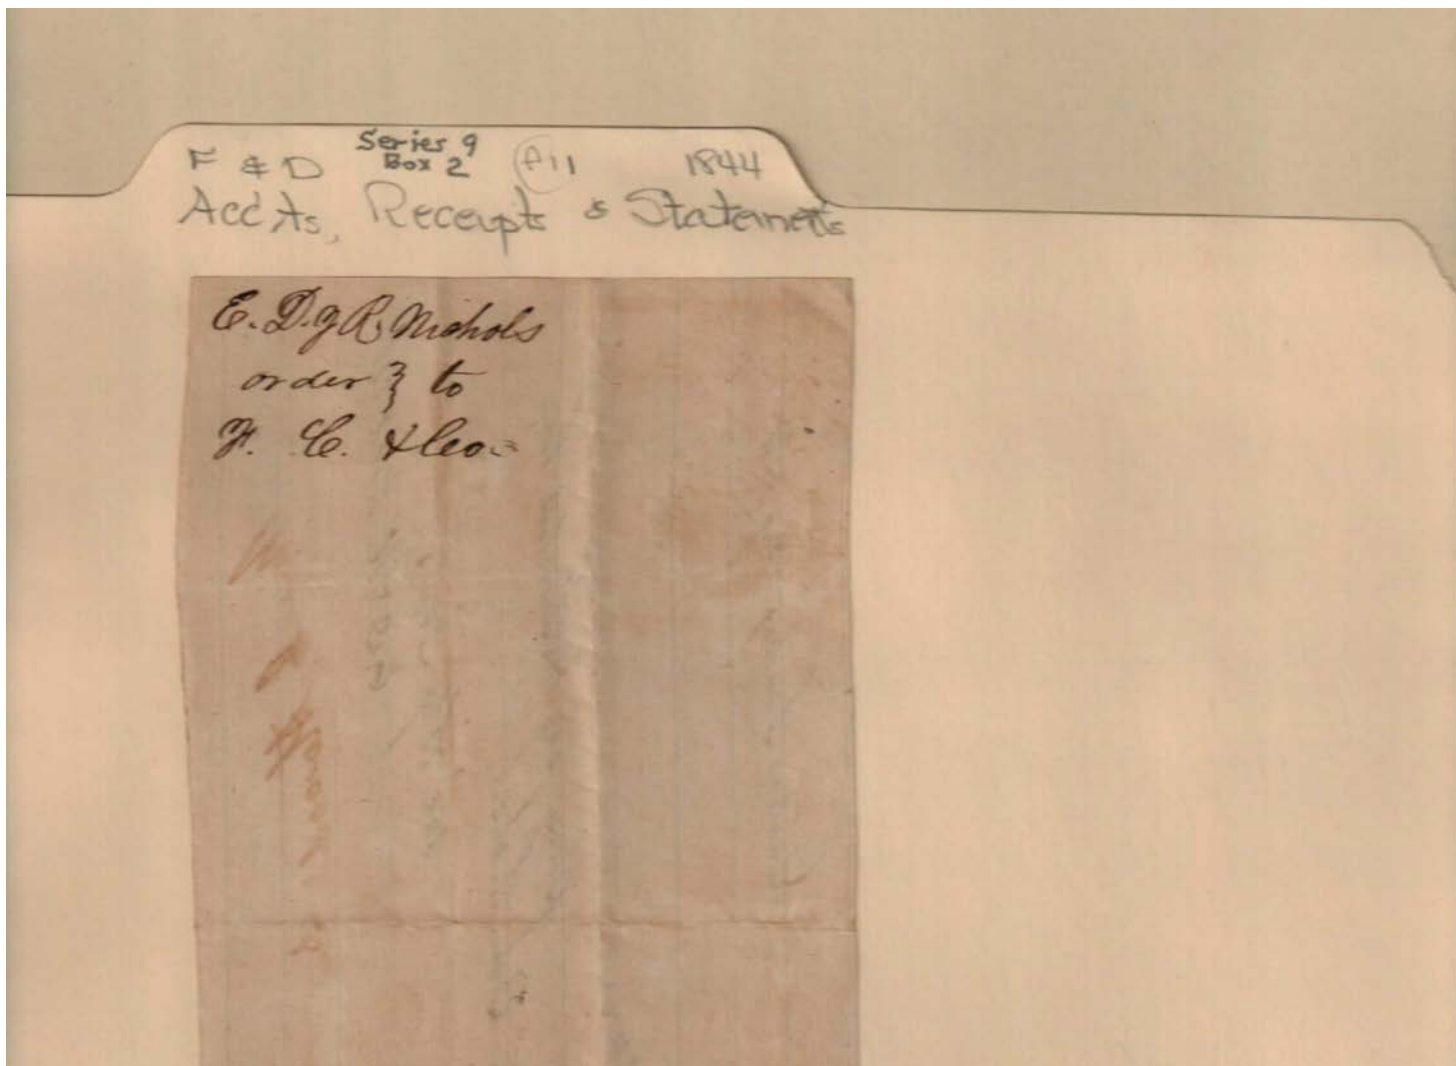 F & D Series 9 Box 2 A11 1844
Accts, Receipts & Statements
E. D. & R. Nichols
order } to
F. C. & Co.